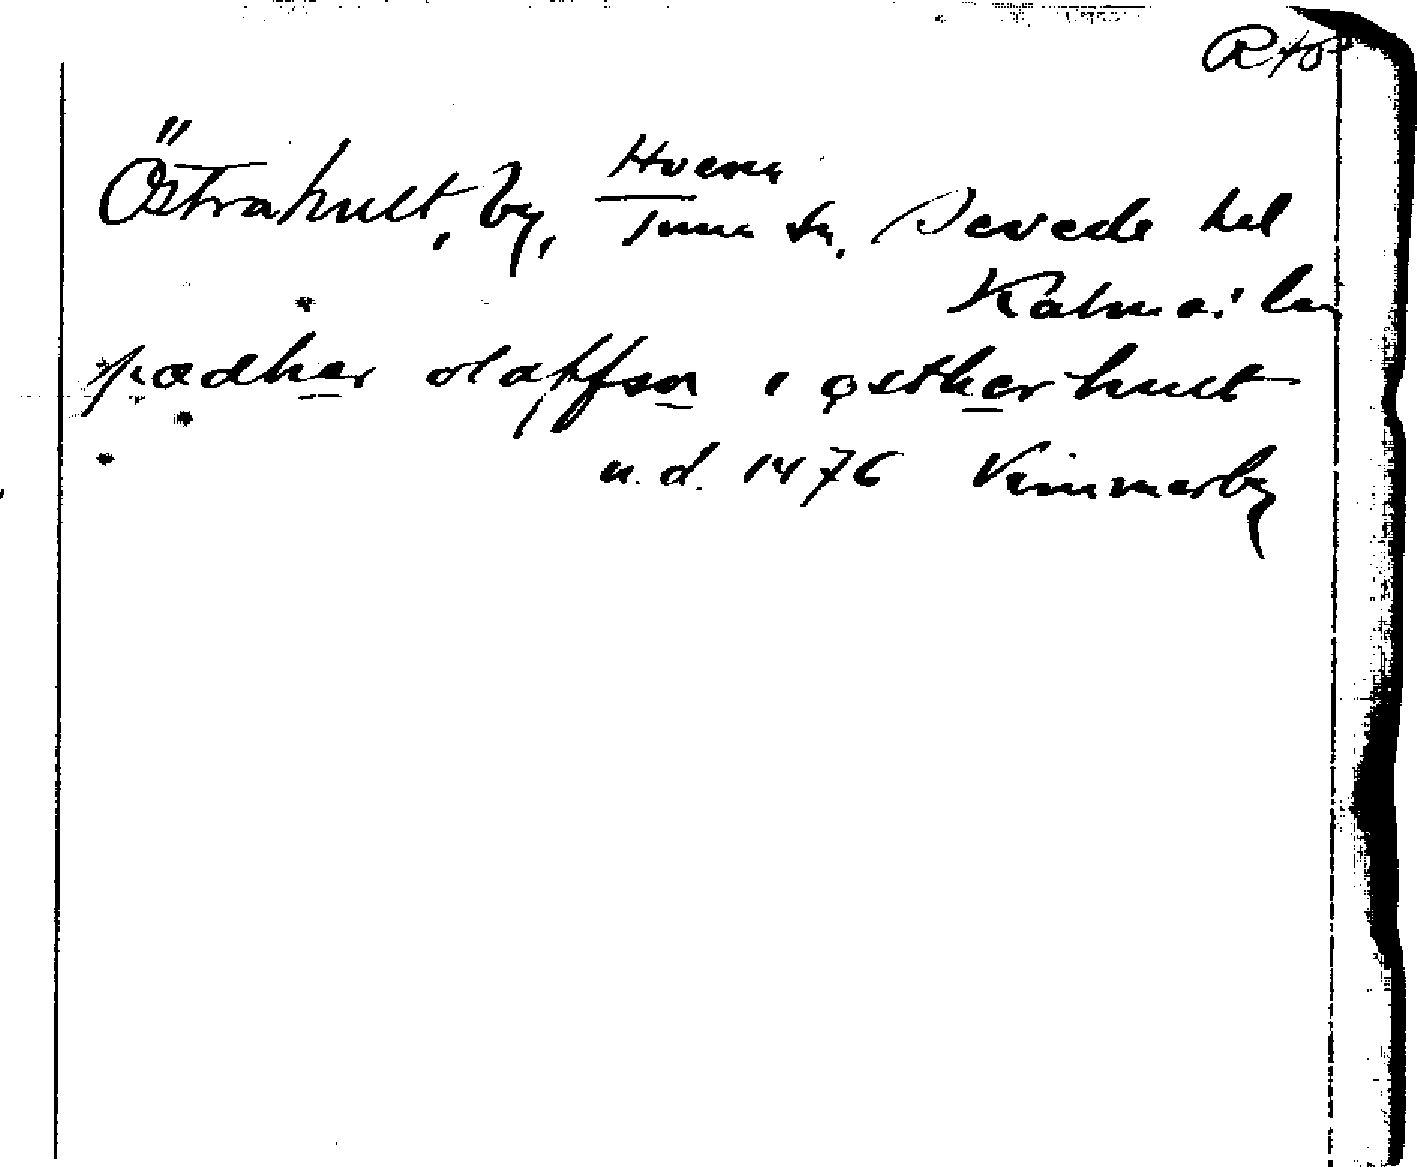 Östrahult, by, Hvena
Tuna sn, Sevede hd
Kalmar län
pædher olaffson i østherhult
u.d. 1476 Vimmerby